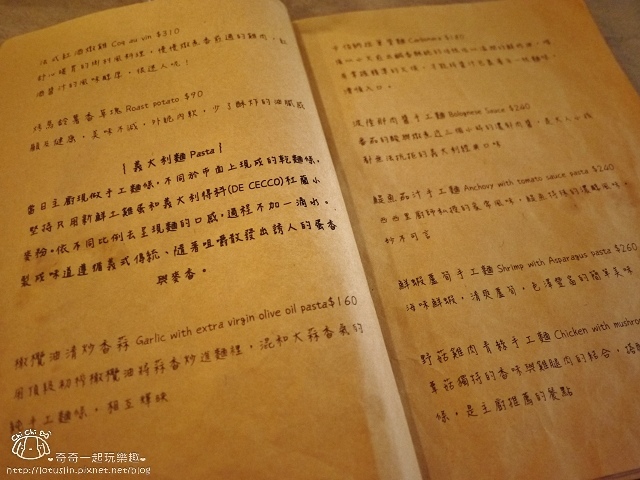 法式紅酒燉雞 Coq au vin $310
烤馬鈴薯香草塊 Roast potato $90
顧及健康，美味不減，外脆內軟，少了酥炸的油膩感
| 義大利麵 Pasta |
當日主廚現做手工麵條，不同於市面上現成的乾麵條，
堅持只用新鮮土雞蛋和義大利得科(DE CECCO)杜蘭小
麥粉。依不同比例去呈現麵的口感，過程不加一滴水。
製程味道遵循義式傳統、隨著咀嚼散發出誘人的蛋香
與麥香。
橄欖油清炒香蒜 Garlic with extra virgin olive oil pasta $160
用頂級初榨橄欖油將蒜香炒進麵裡，混和大蒜香氣的
純手工麵條，相互輝映
Carbonara $180
波隆那肉醬手工麵 Bolognese Sauce $240
鯷魚茄汁手工麵 Anchovy with tomato sauce pasta $240
西西里廚師私授的家常風味，鯷魚特殊的濃郁風味，
妙不可言
鮮蝦蘆筍手工麵 Shrimp with Asparagus pasta $260
海味鮮蝦，清爽蘆筍，色澤豐富的簡單美味
野菇雞肉青蒜手工麵 Chicken with mushro
草菇獨特的香味與雞腿肉的結合，
條，是主廚推薦的餐點
Chi Chi Bo
奇奇一起玩樂趣
http://lotuslin.pixnet.net/blog